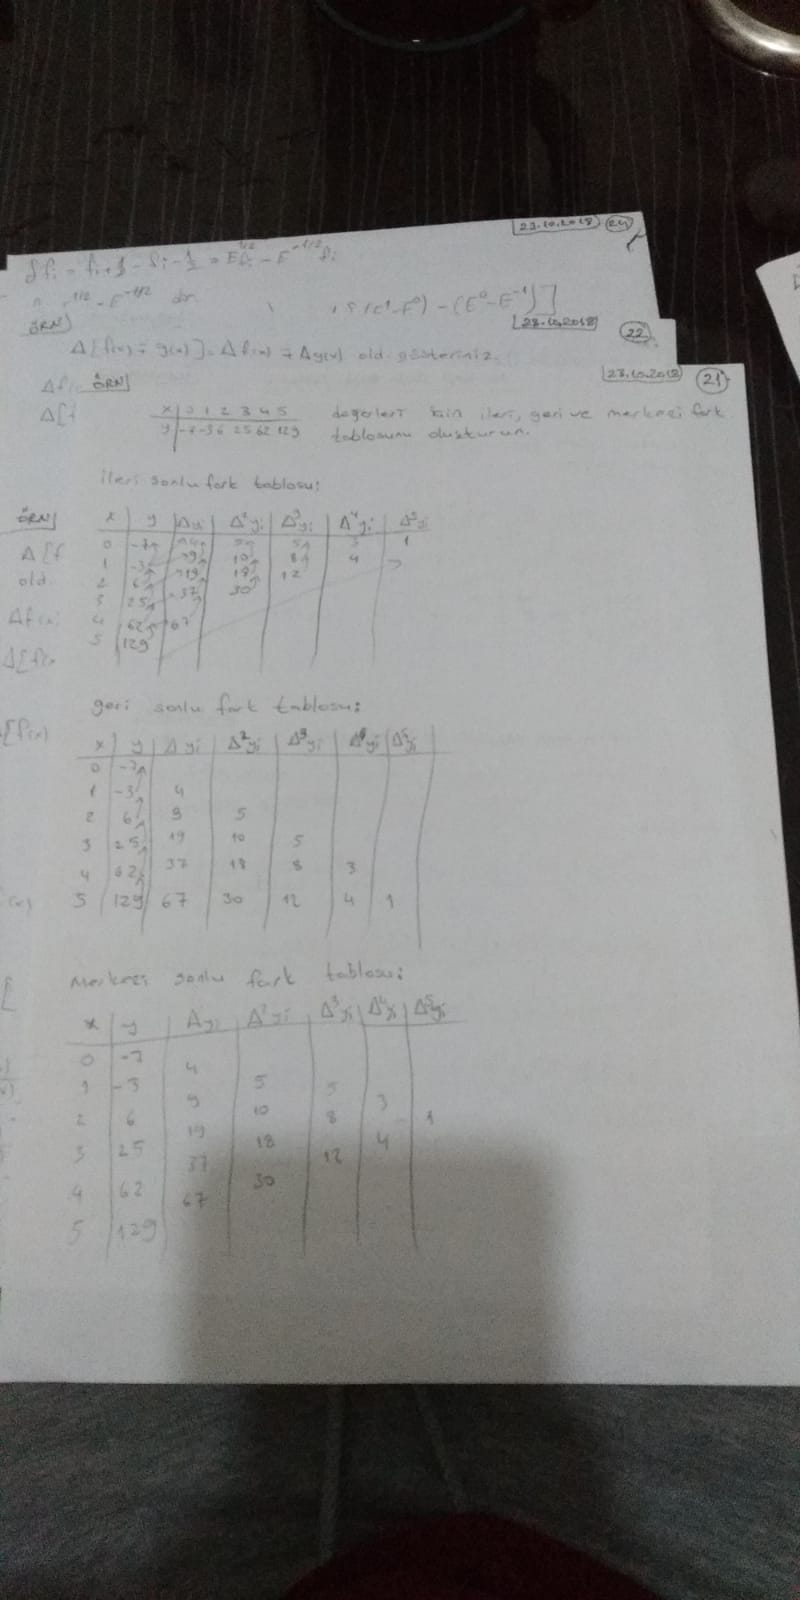 23.10.2018 24
δfi = fi+1/2 - fi-1/2 = E^1/2 fi - E^-1/2 fi
E^1/2 - E^-1/2 dır.
(E¹-E⁰) - (E⁰-E⁻¹)]
ÖRN]
23.10.2018 22
Δ[f(x) ∓ g(x)] = Δf(x) ∓ Δg(x) old. gösteriniz.
23.10.2018 21
Δf(
ÖRN]
Δ[f
x 0 1 2 3 4 5 değerleri için ileri, geri ve merkezi fark
y -7 -3 6 25 62 129 tablosunu oluşturun.
ileri sonlu fark tablosu:
ÖRN]
x y Δyi Δ²yi Δ³yi Δ⁴yi Δ⁵yi
0 -7 4 5 5 3 1
Δ[f
1 -3 9 10 8 4
old.
2 6 19 18 12
3 25 37 30
Δf(x)
4 62 67
5 129
Δ[f(x
geri sonlu fark tablosu:
[f(x)
x y Δyi Δ²yi Δ³yi Δ⁴yi Δ⁵yi
0 -7
1 -3 4
2 6 9 5
3 25 19 10 5
4 62 37 18 8 3
(x)
5 129 67 30 12 4 1
Merkezi sonlu fark tablosu:
x y Δyi Δ²yi Δ³yi Δ⁴yi Δ⁵yi
0 -7
4
1 -3 5 5
9 3
2 6 10 8 1
19 4
3 25 18 12
37
4 62 30
67
5 129